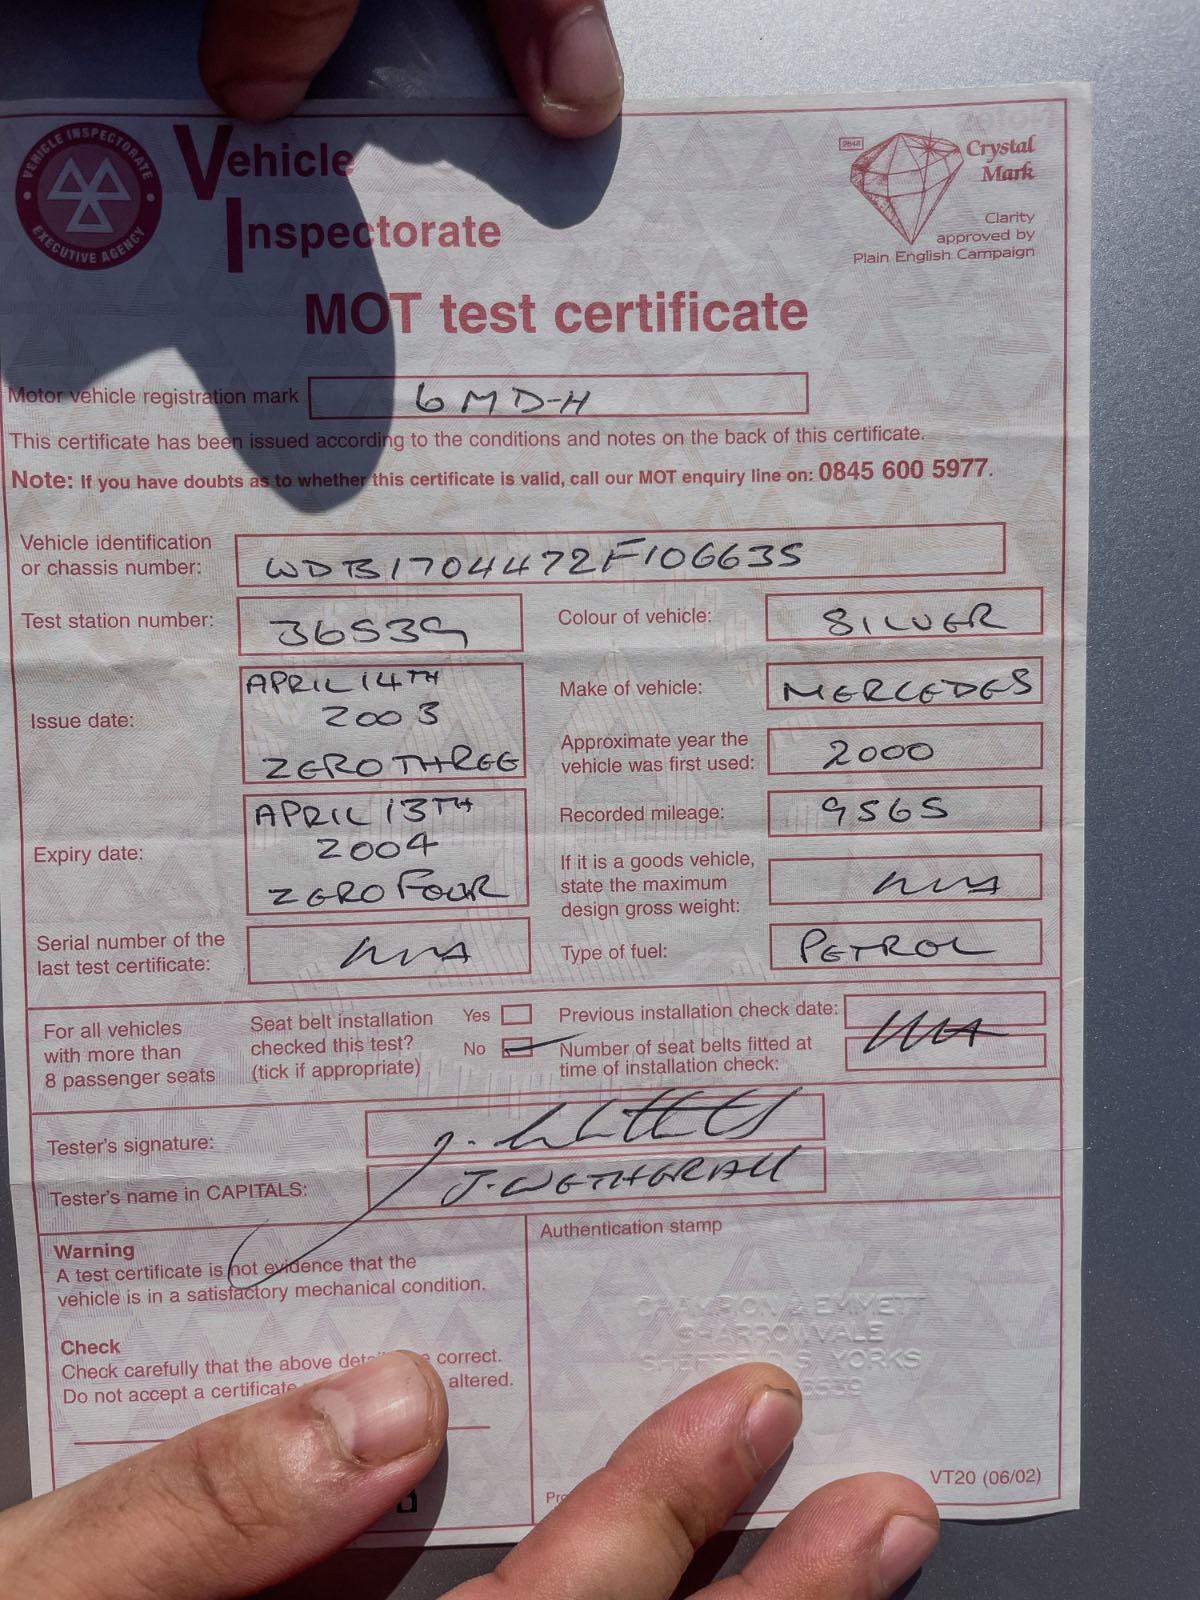 VEHICLE INSPECTORATE
EXECUTIVE AGENCY
Vehicle
Inspectorate
Crystal
Mark
Clarity
approved by
Plain English Campaign
MOT test certificate
Motor vehicle registration mark 6 MD-H
This certificate has been issued according to the conditions and notes on the back of this certificate.
Note: If you have doubts as to whether this certificate is valid, call our MOT enquiry line on: 0845 600 5977.
Vehicle identification
or chassis number: WDB1704472F106635
Test station number: 36539
Colour of vehicle: SILVER
Issue date: APRIL 14TH
2003
ZERO THREE
Make of vehicle: MERCEDES
Approximate year the
vehicle was first used: 2000
Expiry date: APRIL 13TH
2004
ZERO FOUR
Recorded mileage: 9565
If it is a goods vehicle,
state the maximum
design gross weight: N/A
Serial number of the
last test certificate: N/A
Type of fuel: PETROL
For all vehicles
with more than
8 passenger seats
Seat belt installation
checked this test?
(tick if appropriate)
Yes
No
Previous installation check date:
Number of seat belts fitted at
time of installation check: N/A
Tester's signature:
Tester's name in CAPITALS: J. WETHERALL
Warning
A test certificate is not evidence that the
vehicle is in a satisfactory mechanical condition.
Check
Check carefully that the above correct.
Do not accept a certificate altered.
Authentication stamp
CHAMPION & EMMETT
SHARROWVALE
YORKS
VT20 (06/02)